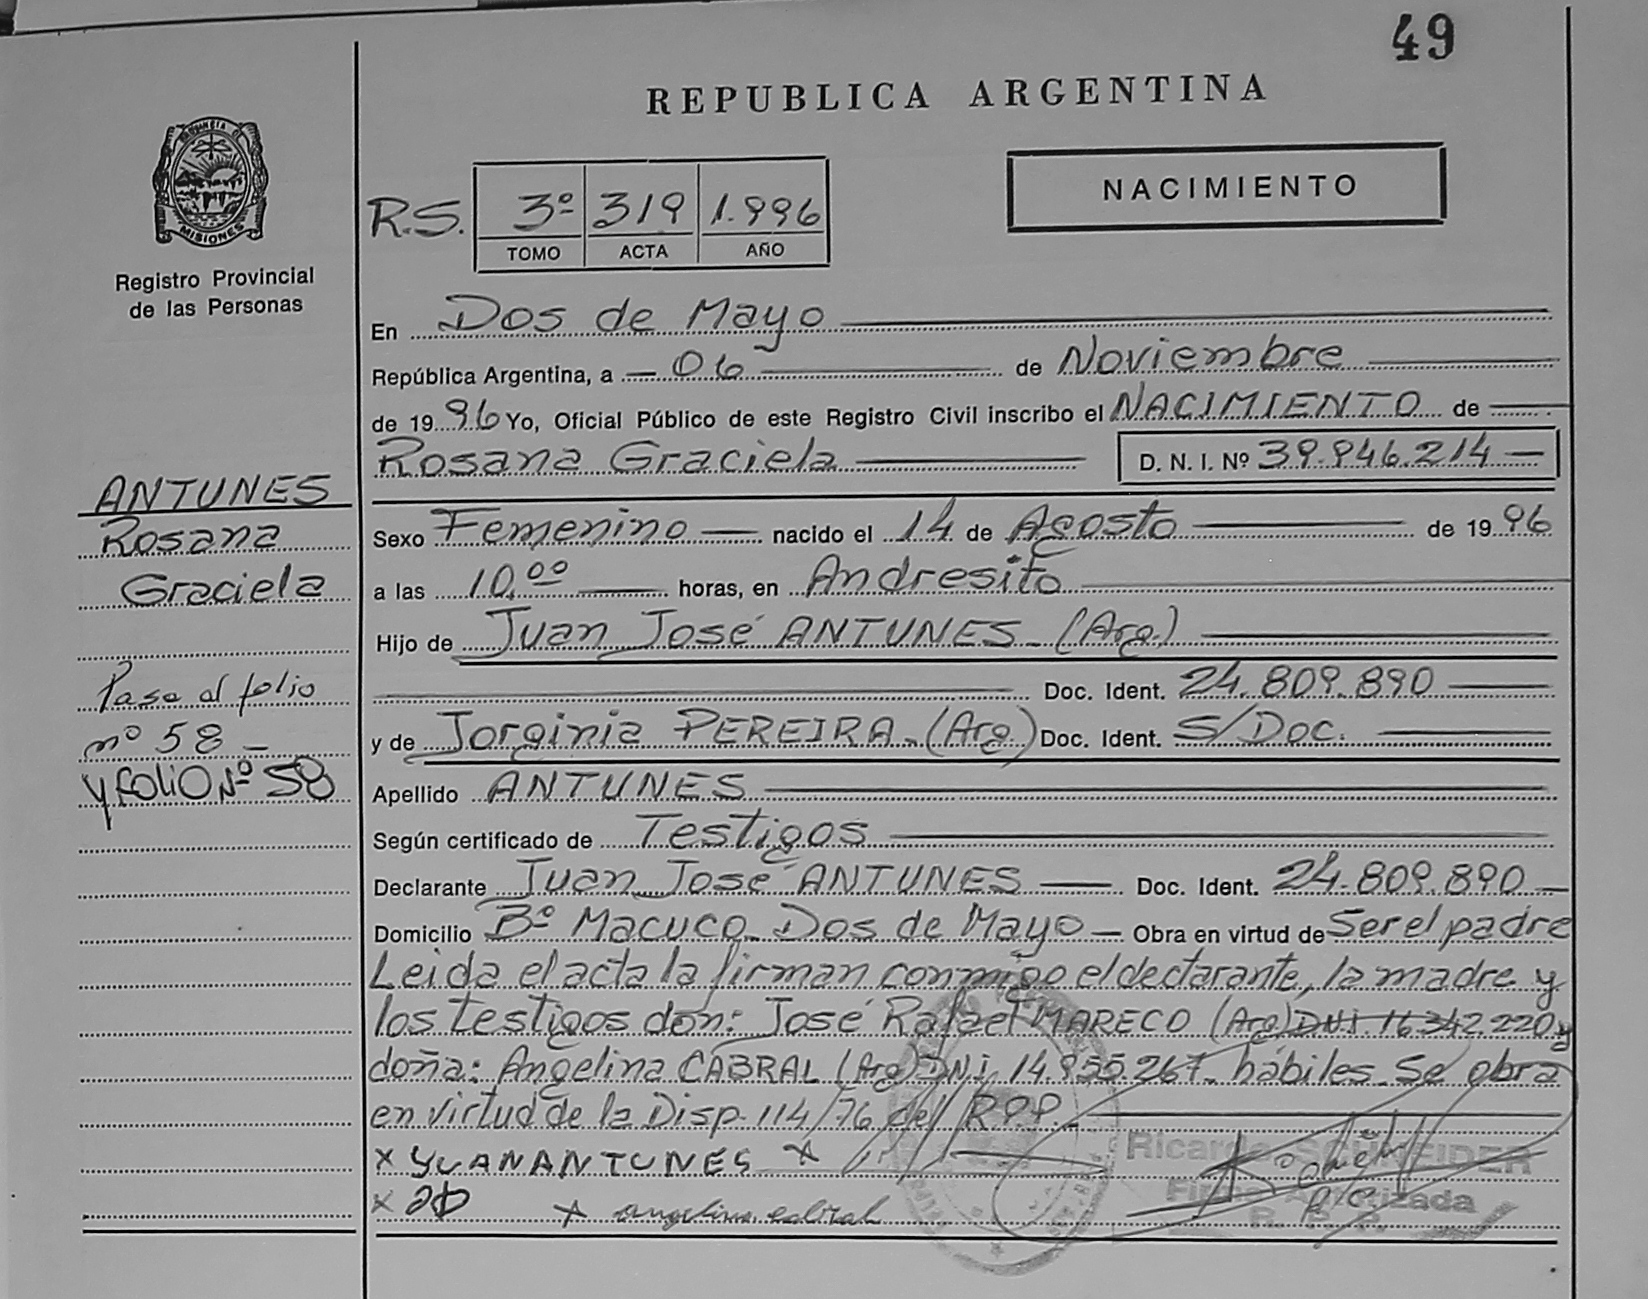 49
REPUBLICA ARGENTINA
PROVINCIA D
MISIONES
Registro Provincial
de las Personas
R.S. 3º 319 1.996
TOMO ACTA AÑO
NACIMIENTO
En Dos de Mayo
República Argentina, a 06 de Noviembre
de 19 96 Yo, Oficial Público de este Registro Civil inscribo el NACIMIENTO de
Rosana Graciela D. N. I. Nº 39.946.214
ANTUNES
Rosana
Graciela
Pasa al folio
nº 58
y folio Nº 58
Sexo Femenino nacido el 14 de Agosto de 19 96
a las 10,00 horas, en Andresito
Hijo de Juan José ANTUNES (Arg.)
Doc. Ident. 24.809.890
y de Jorginia PEREIRA (Arg.) Doc. Ident. S/Doc.
Apellido ANTUNES
Según certificado de Testigos
Declarante Juan José ANTUNES Doc. Ident. 24.809.890
Domicilio Bº Macuco Dos de Mayo Obra en virtud de Ser el padre
Leida el acta la firman conmigo el declarante, la madre y
los testigos don: José Rafael MARECO (Arg) DNI. 16.342.220 y
doña: Angelina CABRAL (Arg) DNI. 14.955.267 hábiles. Se obra
en virtud de la Disp. 114/76 del R.P.P.
x YUANANTUNES x
Ricardo SCHNEIDER
Firma Autorizada
R. P. P.
x x angelina cabral